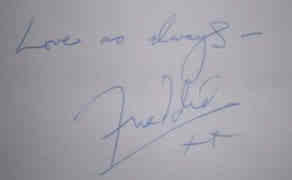 Love as always —
Freddie
xx